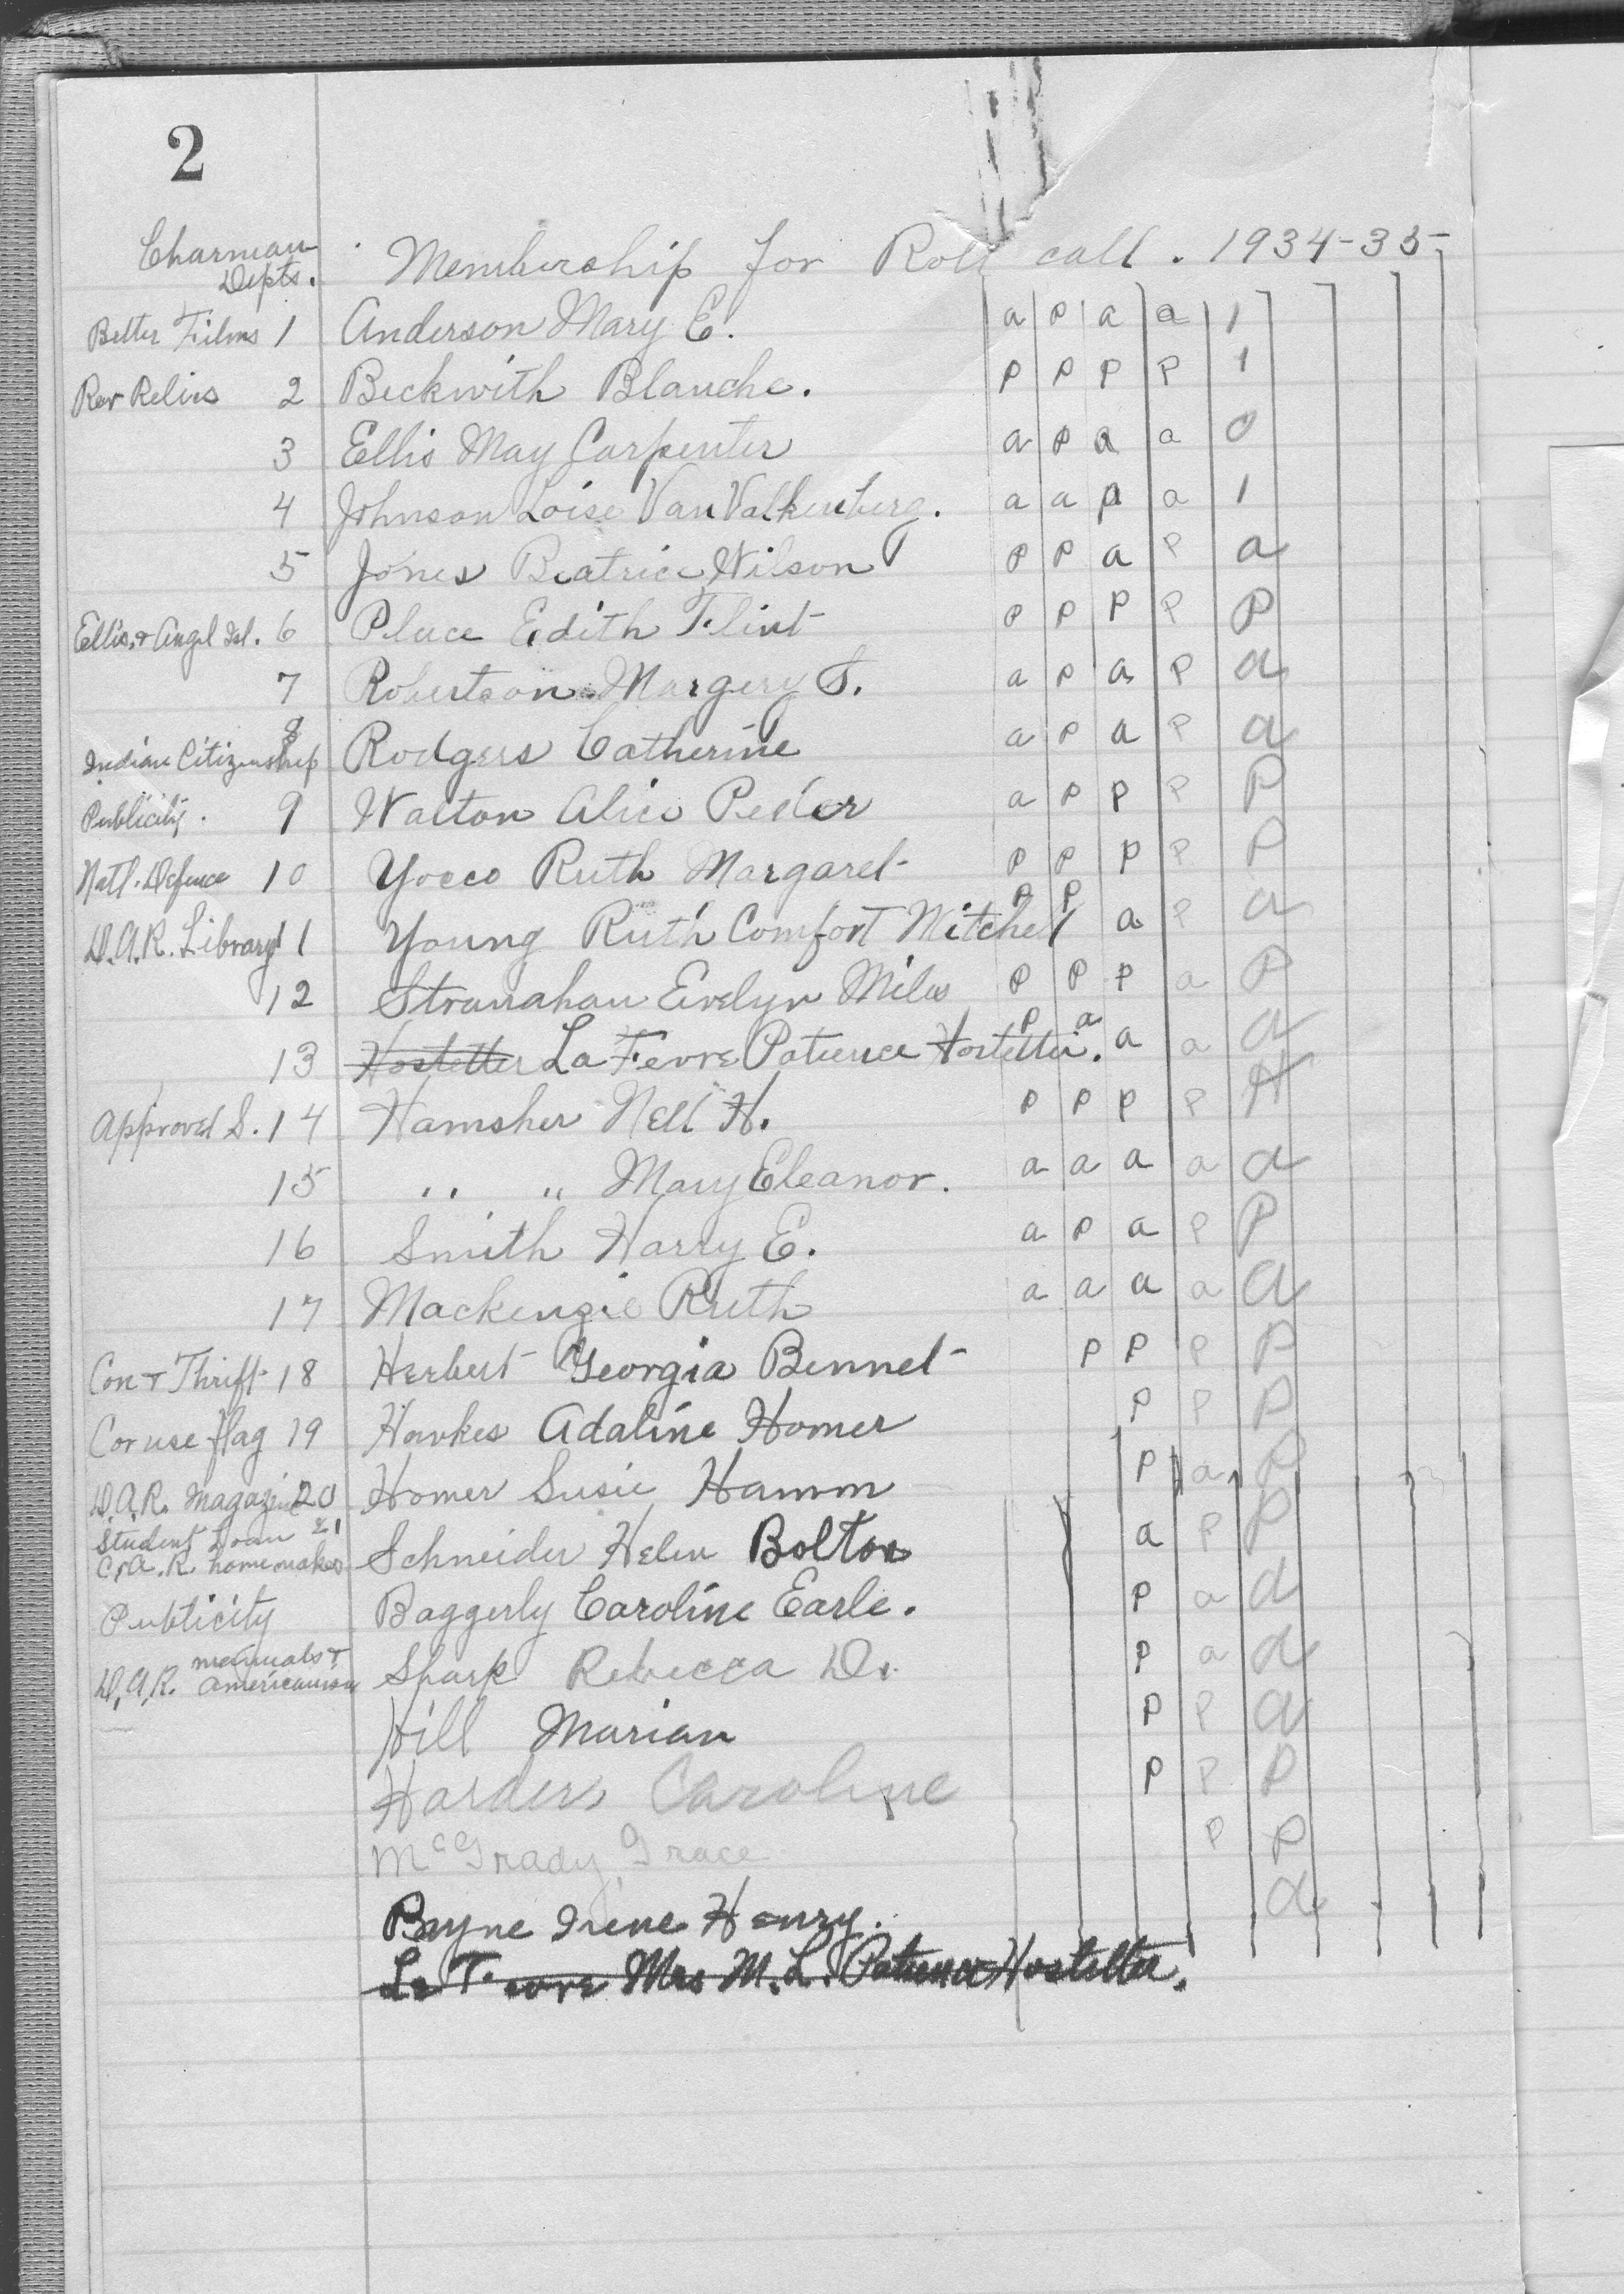 2
Charman
Depts.
Membership for Roll call. 1934-35
Better Films 1 Anderson Mary E. a p a a 1
Rev Relics 2 Beckwith Blanche. p p p p 1
3 Ellis May Carpenter a p a a 0
4 Johnson Loise Van Valkenberg. a a p a 1
5 Jones Beatrice Wilson p p a p a
Ellis & Angel Isl. 6 Place Edith Flint p p p p P
7 Robertson Margery S. a p a p a
Indian Citizenship 8 Rodgers Catherine a p a p a
Publicity. 9 Walton Alice Peeler a p p p P
Natl. Defence 10 Yocco Ruth Margaret p p p p P
D.A.R. Library 11 Young Ruth Comfort Mitchell p p a p a
12 Stranahan Evelyn Miles p p p a P
13 Hostetter La Fevre Patience Hostetter. p a a a a
Approved S. 14 Hamsher Nell H. p p p p
15 " " Mary Eleanor. a a a a a
16 Smith Harry E. a p a p P
17 Mackenzie Ruth a a a a a
Con & Thrift 18 Herbert Georgia Bennet p p p P
Cor use flag 19 Hawkes Adaline Homer p p P
D.A.R. Magazine 20 Homer Susie Hamm p a P
Student Loan 21
C.A.R. homemakers Schneider Helen Bolton a p P
Publicity Baggerly Caroline Earle. p a a
D.A.R. manuals & Americanism Shark Rebecca D. p a a
Hill Marian p p a
Harders Caroline p p P
McGrady Grace p P
Bayne Irene Henry. a
Le Fevre Mrs M. L. Patience Hostetter.